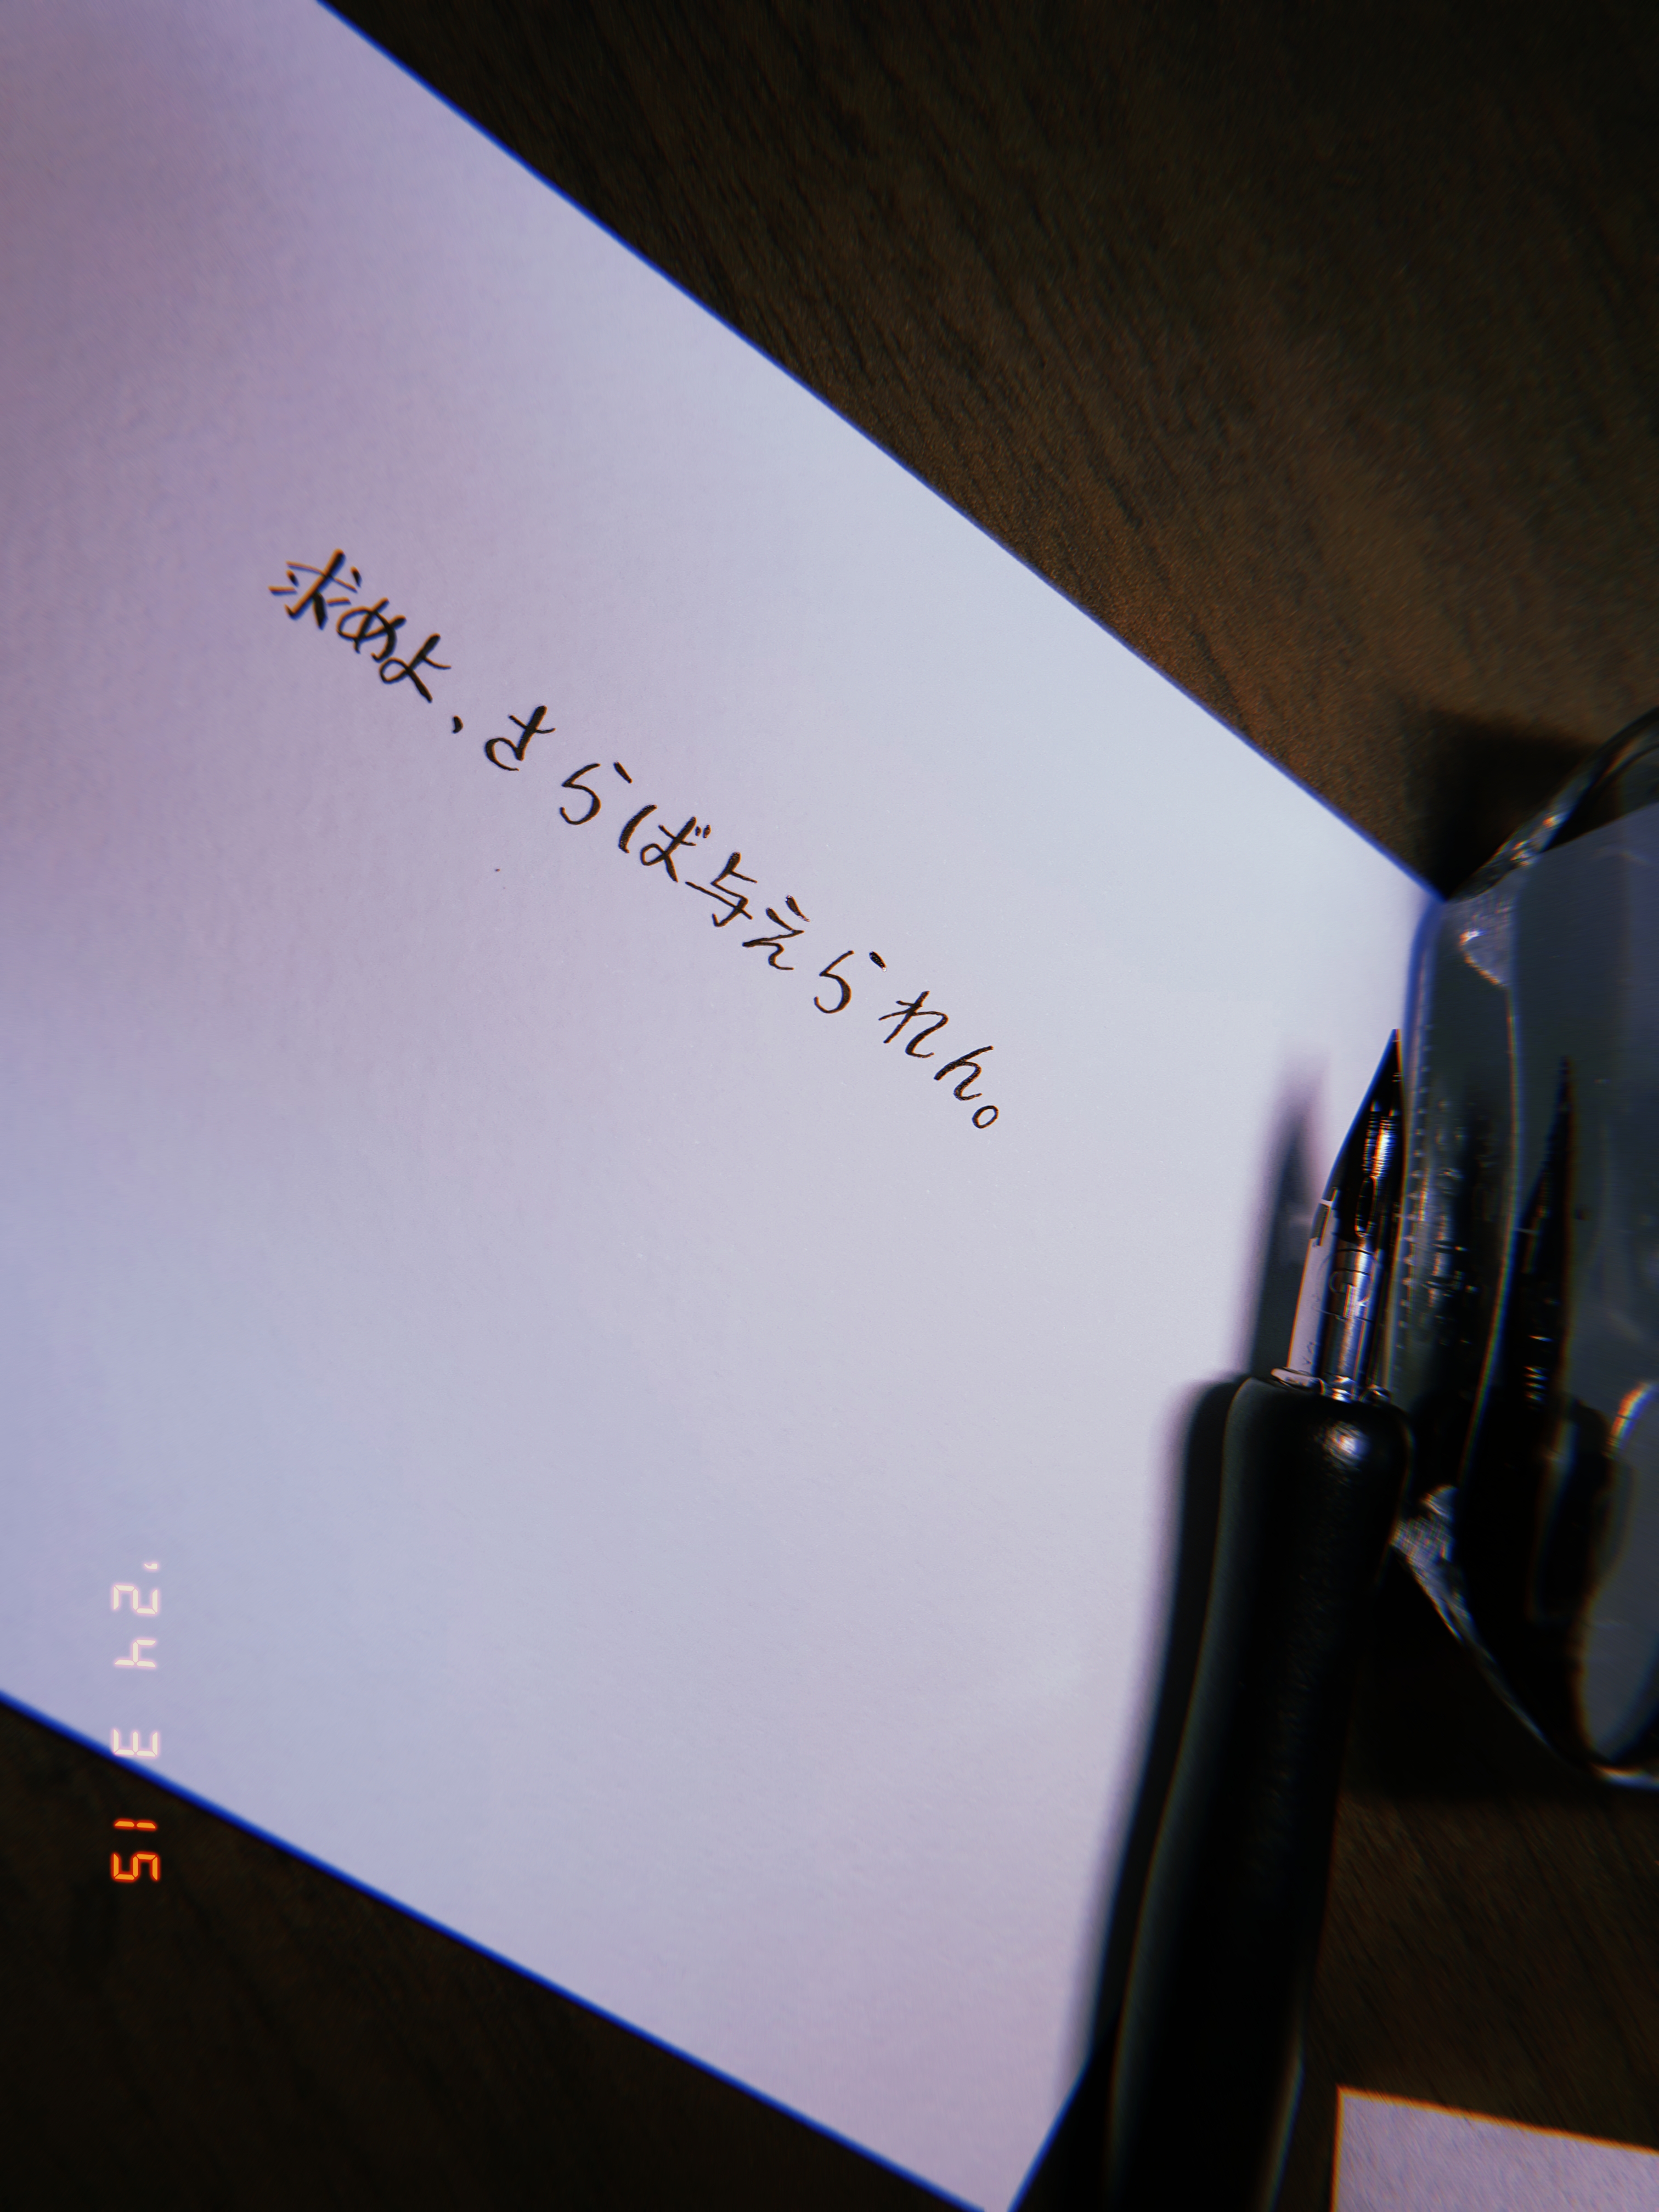 求めよ、さらば与えられん。
'24 3 15